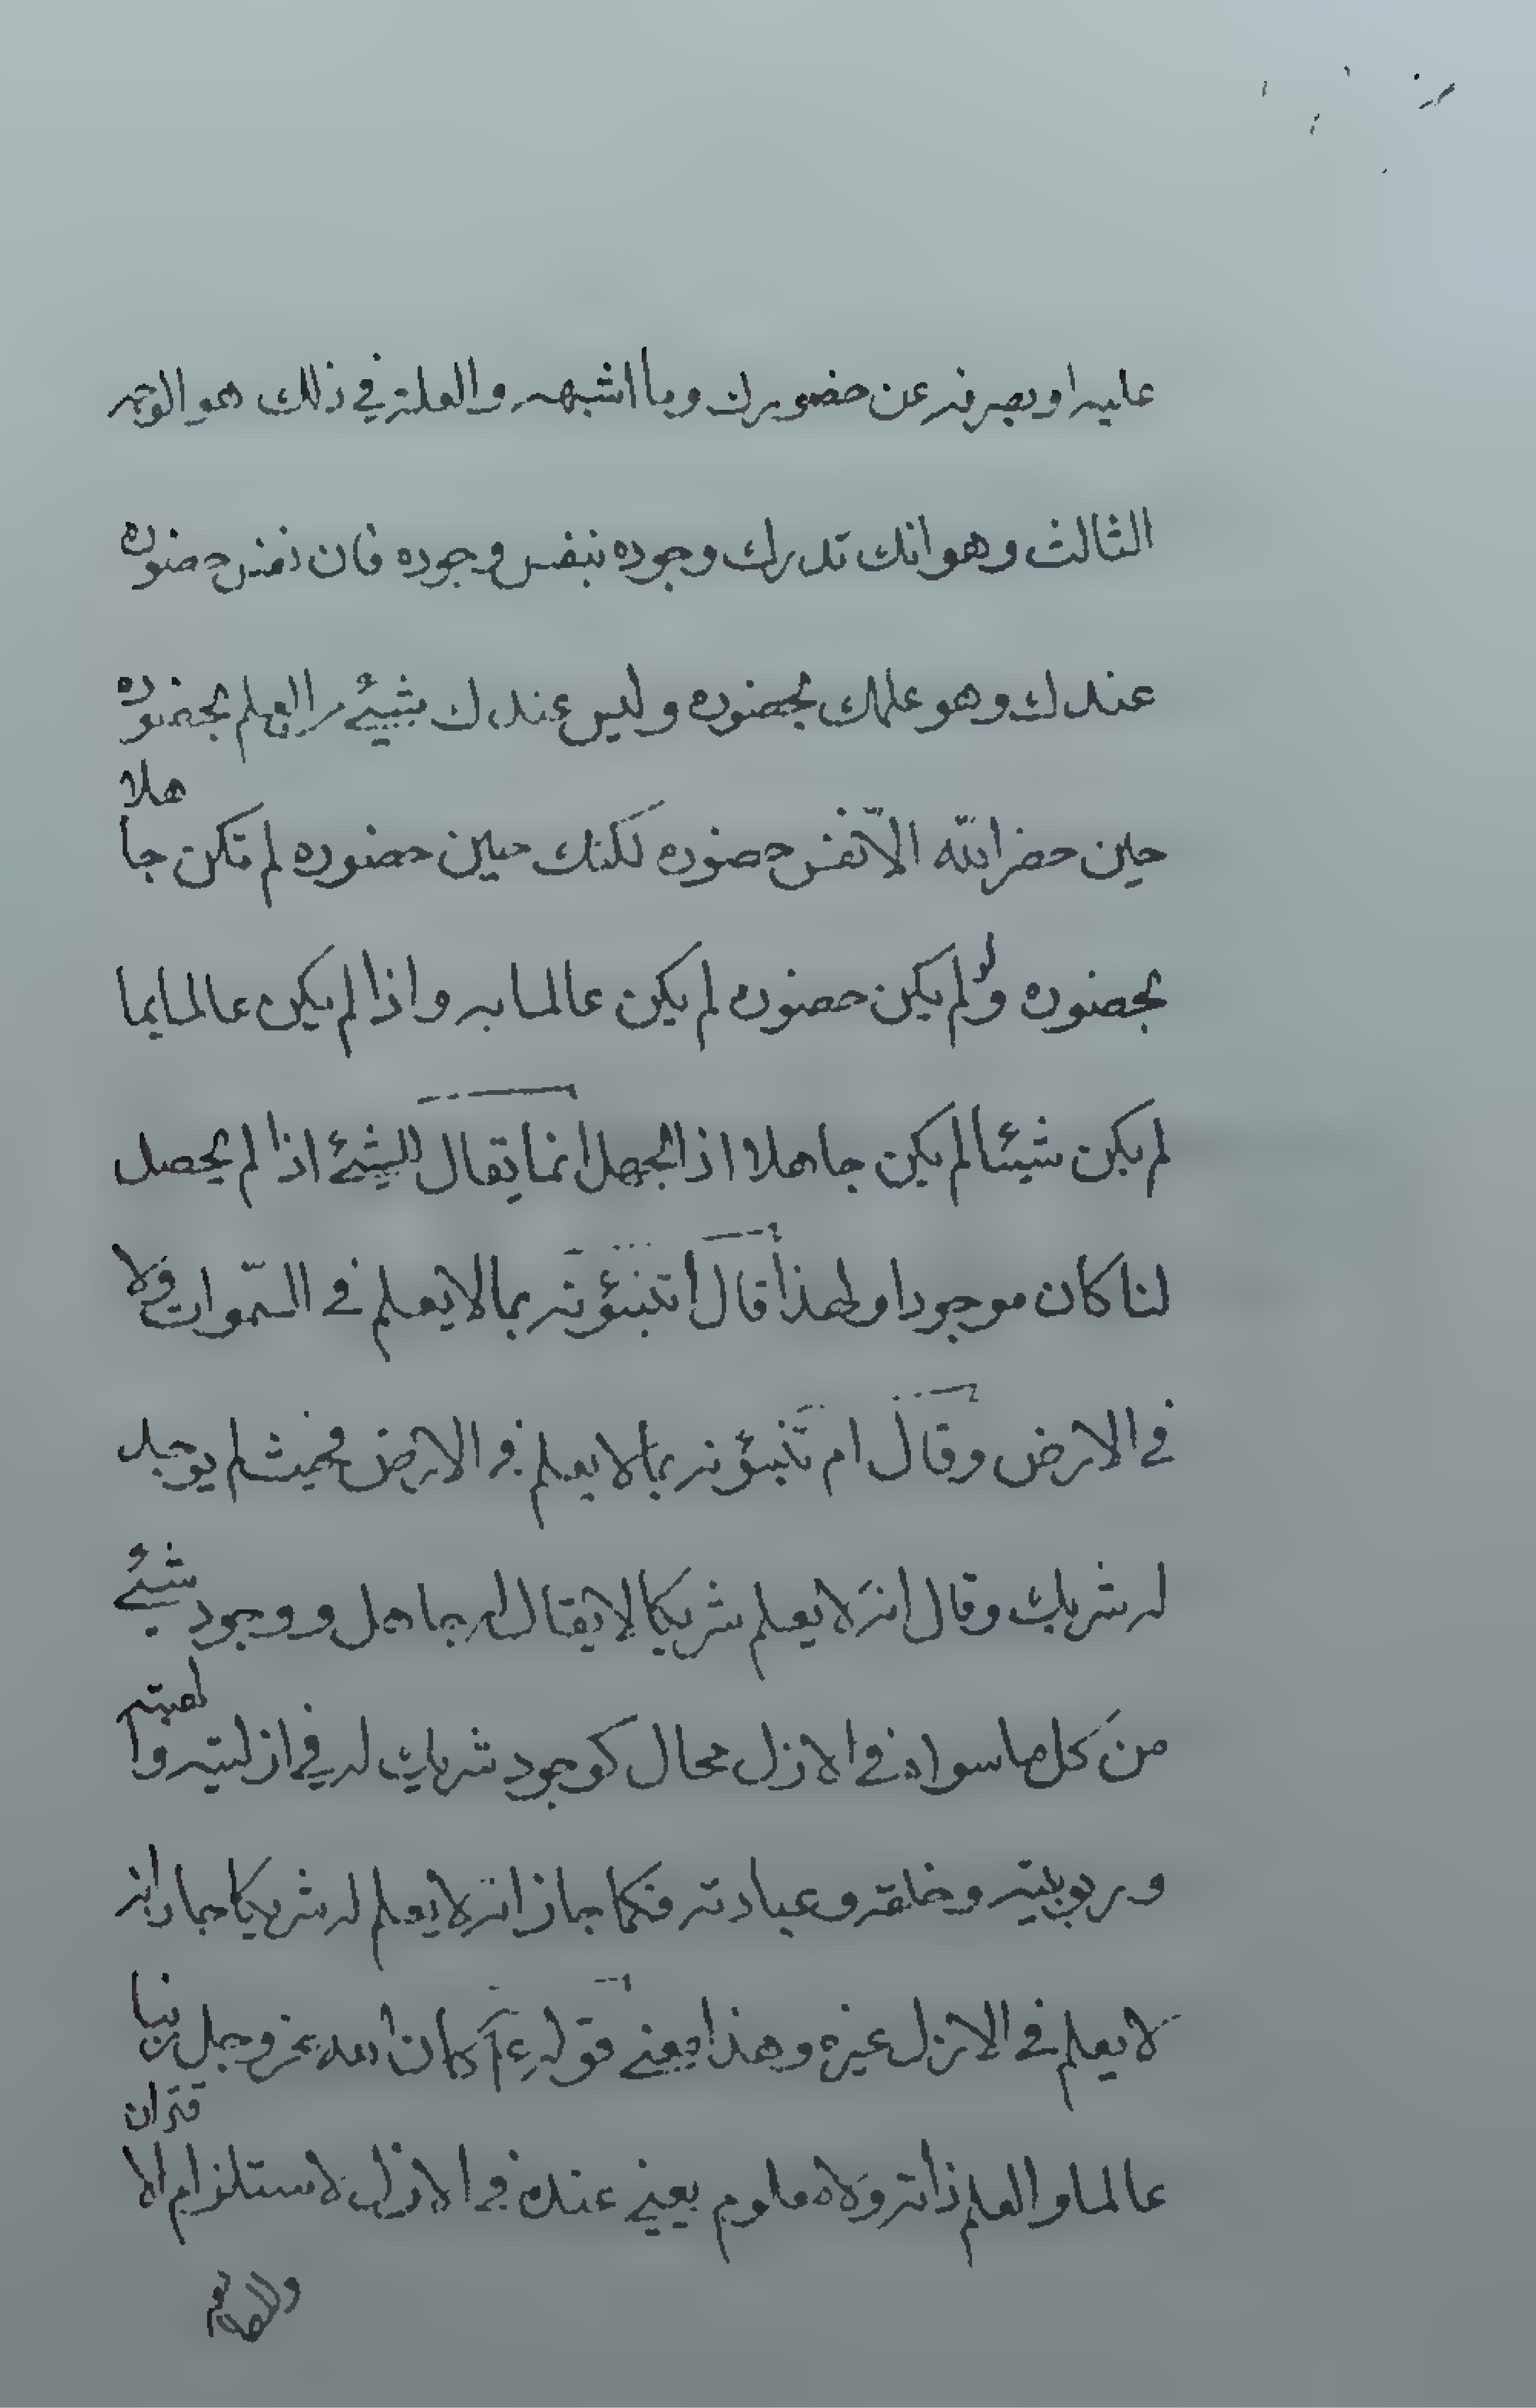 عليه او يصرفه عن حضورك وما اشبهه والعلة في ذلك هو الوجه
الثالث وهو انك تدرك وجوده بنفس وجوده فان نفس حضوره
عندك وهو علمك بحضوره وليس عندك شيئ من العلم بحضوره
حين حضر اﷲ الّا نفس حضوره لكنك حين حضوره لم تكن جاهلا
بحضوره ولو لم يكن حضوره لم يكن عالما به واذا لم يكن عالما بما
لم يكن شيئا لم يكن جاهلا اذ الجهل انما يقال للشيئ اذا لم يحصل
لنا كان موجودا ولهذا قال أتنبئونه بما لا يعلم في السّموات ولا
في الارض وقال ام تنبؤنه بما لا يعلم في الارض فحيث لم يوجد
له شريك وقال انه لا يعلم شريكا لا يقال له جاهل ووجود شيئ
من كل ما سواه في الازل محال كوجود شريك له في ازليته والهيته
وربوبيته وخلقه وعبادته فكما جاز انه لا يعلم له شريكا جاز انه
لا يعلم في الازل غيره وهذا معنى قوله ع كان الله عز وجل ربنا
عالما والعلم ذاته ولا معلوم يعني عنده في الازل لاستلزام الاقتران